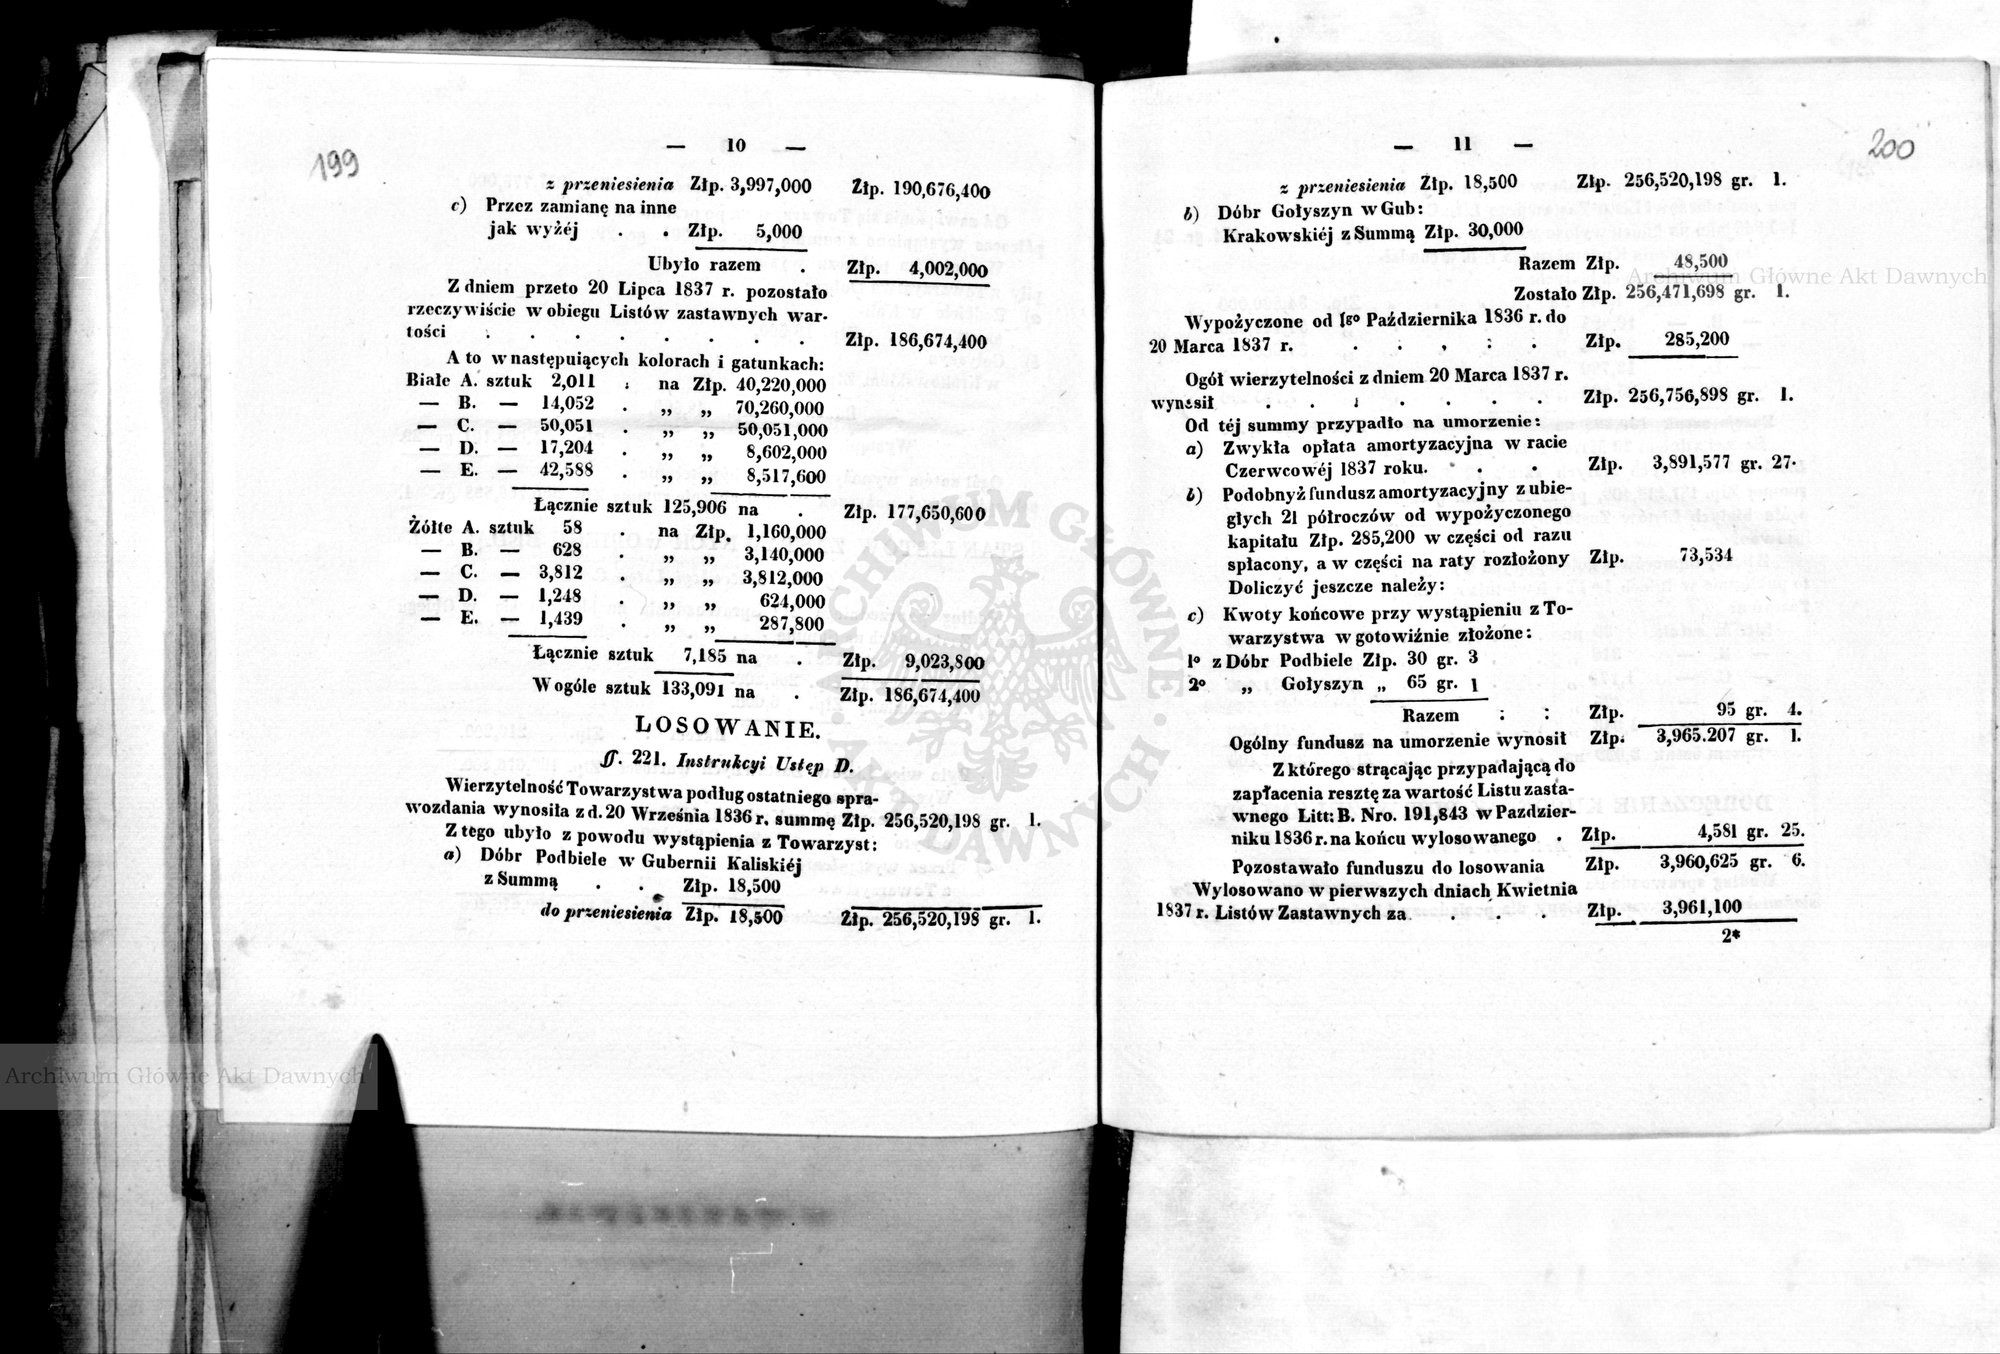 199
— 10 —
z przeniesienia Złp. 3,997,000 Złp. 190,676,400
c) Przez zamianę na inne
jak wyżéj . . Złp. 5,000
Ubyło razem . Złp. 4,002,000
Z dniem przeto 20 Lipca 1837 r. pozostało
rzeczywiście w obiegu Listów zastawnych war-
tości . . . . . . . Złp. 186,674,400
A to w następuiących kolorach i gatunkach:
Białe A. sztuk 2,011 . na Złp. 40,220,000
— B. — 14,052 . „ „ 70,260,000
— C. — 50,051 . „ „ 50,051,000
— D. — 17,204 . „ „ 8,602,000
— E. — 42,588 . „ „ 8,517,600
Łącznie sztuk 125,906 na . Złp. 177,650,600
Żółte A. sztuk 58 . na Złp. 1,160,000
— B. — 628 . „ „ 3,140,000
— C. — 3,812 . „ „ 3,812,000
— D. — 1,248 . „ „ 624,000
— E. — 1,439 . „ „ 287,800
Łącznie sztuk 7,185 na . Złp. 9,023,800
W ogóle sztuk 133,091 na . Złp. 186,674,400
LOSOWANIE.
§. 221. Instrukcyi Ustęp D.
Wierzytelność Towarzystwa podług ostatniego spra-
wozdania wynosiła z d. 20 Września 1836 r. summę Złp. 256,520,198 gr. 1.
Z tego ubyło z powodu wystąpienia z Towarzyst:
a) Dóbr Podbiele w Gubernii Kaliskiéj
z Summą . . Złp. 18,500
do przeniesienia Złp. 18,500 Złp. 256,520,198 gr. 1.
200
— 11 —
z przeniesienia Złp. 18,500 Złp. 256,520,198 gr. 1.
b) Dóbr Gołyszyn w Gub:
Krakowskiéj z Summą Złp. 30,000
Razem Złp. 48,500
Zostało Złp. 256,471,698 gr. 1.
Wypożyczone od 1go Października 1836 r. do
20 Marca 1837 r. . . , : . Złp. 285,200
Ogół wierzytelności z dniem 20 Marca 1837 r.
wynosił . . . . . . Złp. 256,756,898 gr. 1.
Od téj summy przypadło na umorzenie:
a) Zwykła opłata amortyzacyjna w racie
Czerwcowéj 1837 roku. . . . Złp. 3,891,577 gr. 27.
b) Podobnyż fundusz amortyzacyjny z ubie-
głych 21 półroczów od wypożyczonego
kapitału Złp. 285,200 w części od razu
spłacony, a w części na raty rozłożony Złp. 73,534
Doliczyć jeszcze należy:
c) Kwoty końcowe przy wystąpieniu z To-
warzystwa w gotowiźnie złożone:
1o z Dóbr Podbiele Złp. 30 gr. 3
2o „ Gołyszyn „ 65 gr. 1
Razem : : Złp. 95 gr. 4.
Ogólny fundusz na umorzenie wynosił Złp. 3,965.207 gr. 1.
Z którego strącając przypadającą do
zapłacenia resztę za wartość Listu zasta-
wnego Litt: B. Nro. 191,843 w Pazdzier-
niku 1836 r. na końcu wylosowanego . Złp. 4,581 gr. 25.
Pozostawało funduszu do losowania Złp. 3,960,625 gr. 6.
Wylosowano w pierwszych dniach Kwietnia
1837 r. Listów Zastawnych za . . . Złp. 3,961,100
2*
Archiwum Główne Akt Dawnych
Archiwum Główne Akt Dawnych
ARCHIWUM GŁÓWNE AKT DAWNYCH